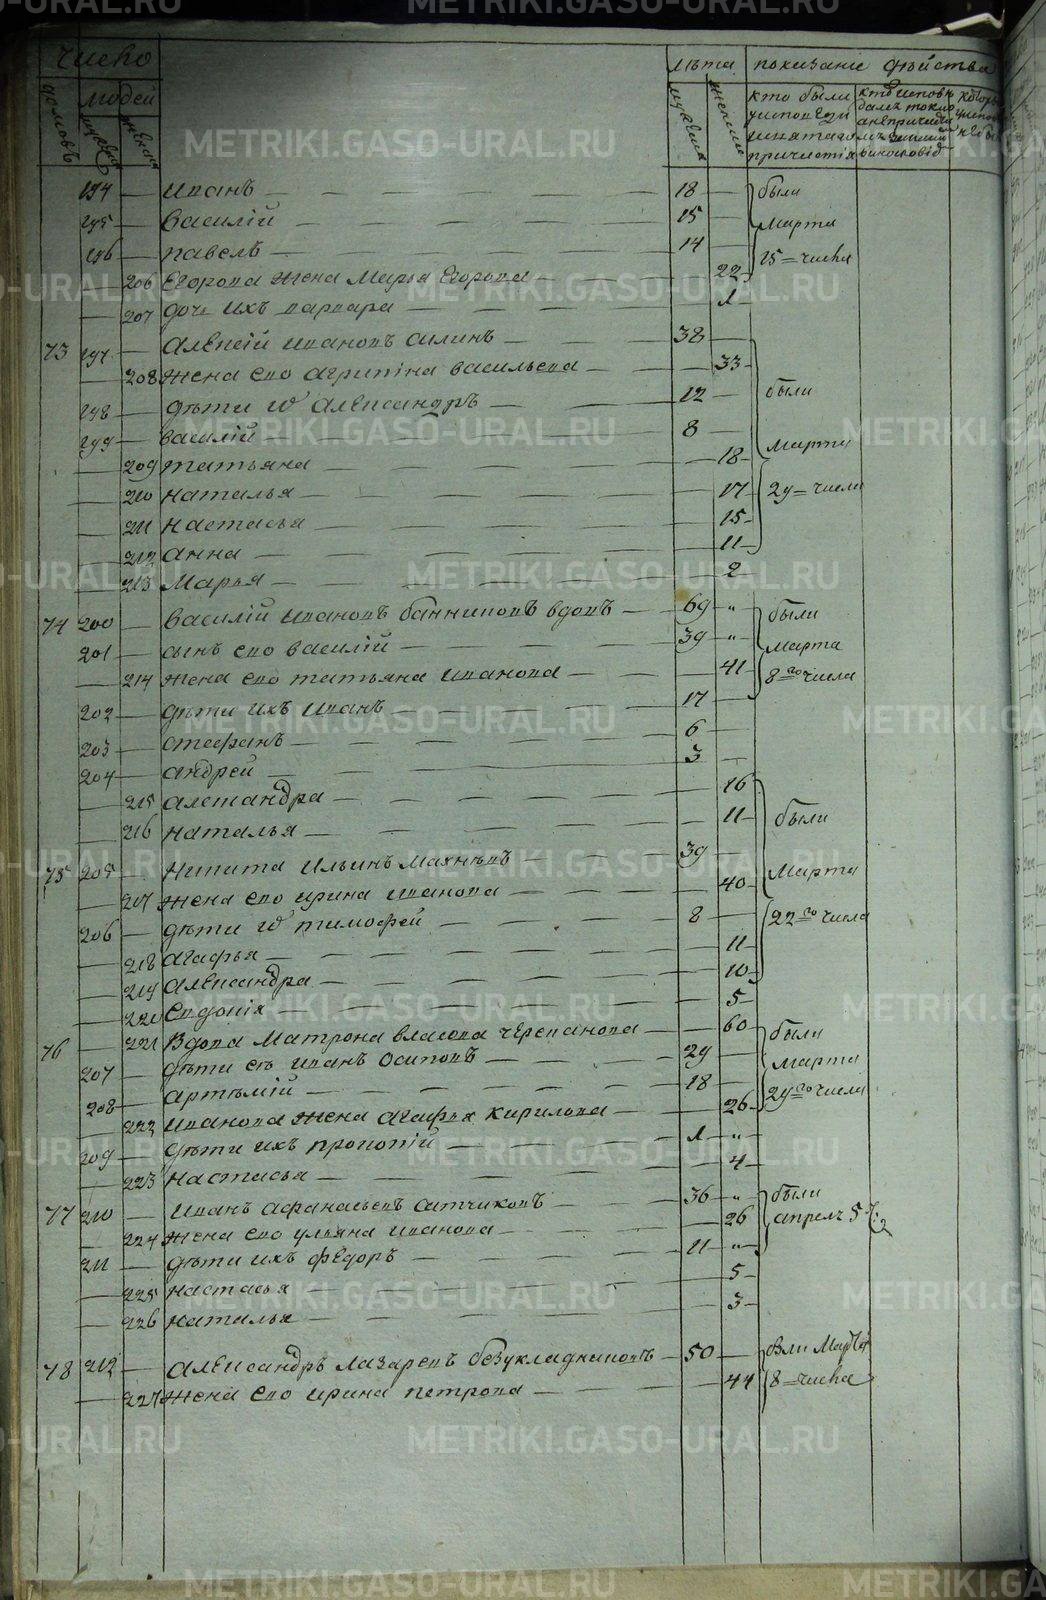 число
домовъ
людей
мужска
женска
лѣта
мужска
женска
показаніе дѣйства
кто были
у исповѣди
и святаго
причастія
кто исповѣ
дался токмо
а не причасти
194 — Иванъ — 18 — были
195 — Василій — 15 — Марта
196 — Павелъ — 14 — 15 = числа
— 206 Егорова жена Марья Егорова — 22
— 207 дочь ихъ Варвара — 1
73 197 — Алексій Ивановъ Силинъ — 38
— 208 жена ево Агрипіна Васильева — 33
198 — дѣти ѿ Александръ — 12 — были
199 — Василій — 8 — Марта
— 209 Татьяна — 18
— 210 Наталья — 17 29 = числа
— 211 Настасья — 15
— 212 Анна — 11
— 213 Марья — 2
74 200 — Василій Ивановъ Банниковъ вдовъ — 69 " были
201 — сынъ ево Василій — 39 " Марта
— 214 жена ево Татьяна Иванова — 41 8го числа
202 — дѣти ихъ Иванъ — 17
203 — Стефанъ — 6
204 — Андрей — 3
— 215 Александра — 16
— 216 Наталья — 11 были
75 205 — Никита Ильинъ Махнёвъ — 39 Марта
— 217 жена ево Ирина Иванова — 40
206 — дѣти ѿ Тимофей — 8 22го числа
— 218 Агафья — 11
— 219 Александра — 10
— 220 Евдокія — 5
76 — 221 Вдова Матрона Власова Черепанова — 60 были
207 — дѣти еѣ Иванъ Осиповъ — 29 Марта
208 — Артѣмій — 18 29го числа
— 222 Иванова жена Агафья Кирилова — 26
209 — дѣти ихъ Прокопій — 1 "
— 223 Настасья — 4
77 210 — Иванъ Афанасьевъ Ситчиковъ — 36 " были
— 224 жена ево Ульяна Иванова — 26 апреля 5 ч:
211 — дѣти ихъ Федоръ — 11 "
— 225 Настасья — 5
— 226 Наталья — 3
78 212 — Александръ Лазаревъ Безукладниковъ — 50 — были Марта
— 227 жена ево Ирина Петрова — 44 8 = числа
METRIKI.GASO-URAL.RU